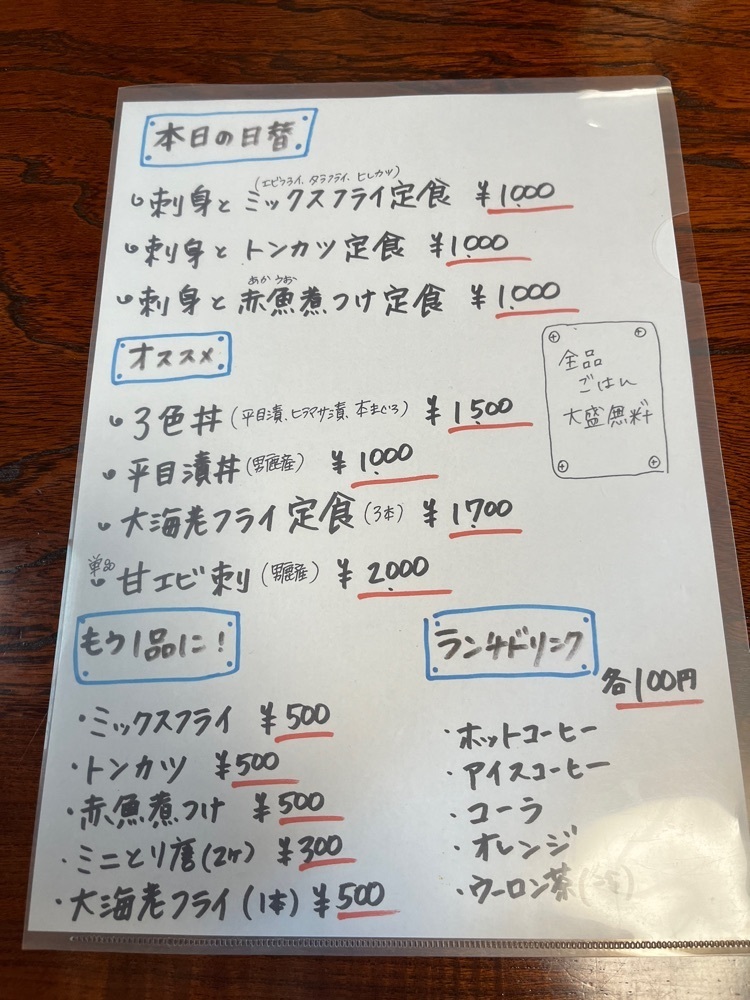 本日の日替
(エビフライ、タラフライ、ヒレカツ)
刺身と ミックスフライ定食 ¥1,000
刺身と トンカツ定食 ¥1,000
あかうお
刺身と 赤魚煮つけ定食 ¥1,000
オススメ
全品
ごはん
大盛無料
3色丼(平目漬、ヒラマサ漬、本まぐろ) ¥1,500
平目漬丼(男鹿産) ¥1,000
大海老フライ定食(3本) ¥1,700
単品 甘エビ刺(男鹿産) ¥2,000
もう1品に!
・ミックスフライ ¥500
・トンカツ ¥500
・赤魚煮つけ ¥500
・ミニとり唐(2ヶ) ¥300
・大海老フライ(1本) ¥500
ランチドリンク
各100円
・ホットコーヒー
・アイスコーヒー
・コーラ
・オレンジ
・ウーロン茶